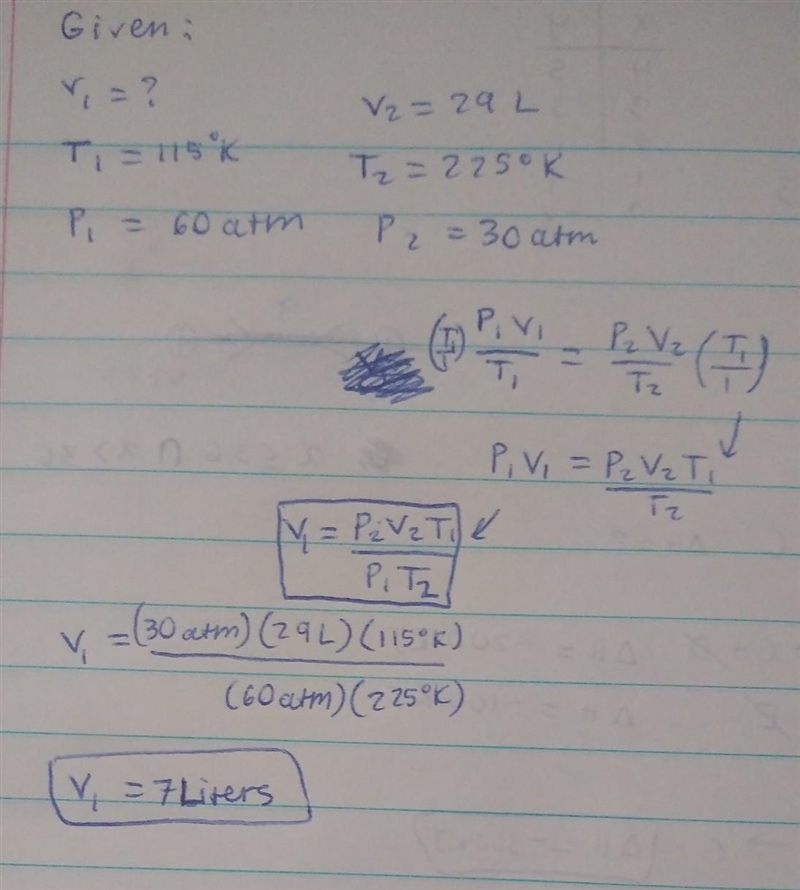 Given:
V₁ = ?
V₂ = 29 L
T₁ = 115°K
T₂ = 225°K
P₁ = 60 atm
P₂ = 30 atm
(T₁/1) P₁V₁/T₁ = P₂V₂/T₂ (T₁/1)
P₁V₁ = P₂V₂T₁/T₂
V₁ = P₂V₂T₁/P₁T₂
V₁ = (30 atm)(29 L)(115°K)/(60 atm)(225°K)
V₁ = 7 Liters